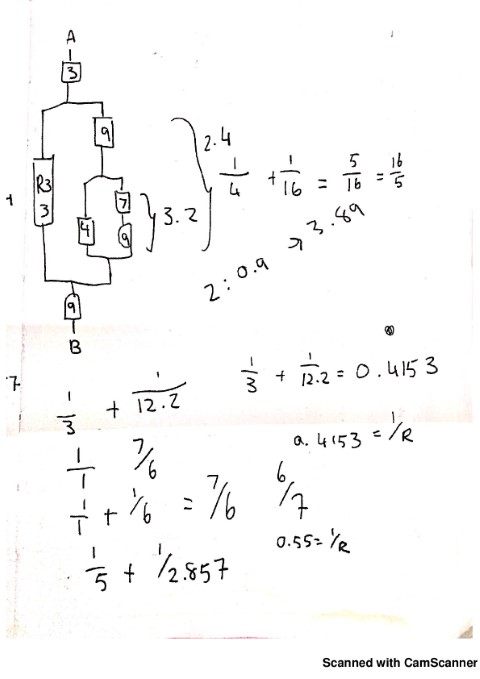 A
3
9
R3
3
7
4
9
9
B
3.2
2.4
1/4 + 1/16 = 5/16 = 16/5
2:0.9 → 3.89
1/3 + 1/12.2
1/3 + 1/12.2 = 0.4153
0.4153 = 1/R
1/1 7/6
1/1 + 1/6 = 7/6
6/7
0.55 = 1/R
1/5 + 1/2.857
Scanned with CamScanner